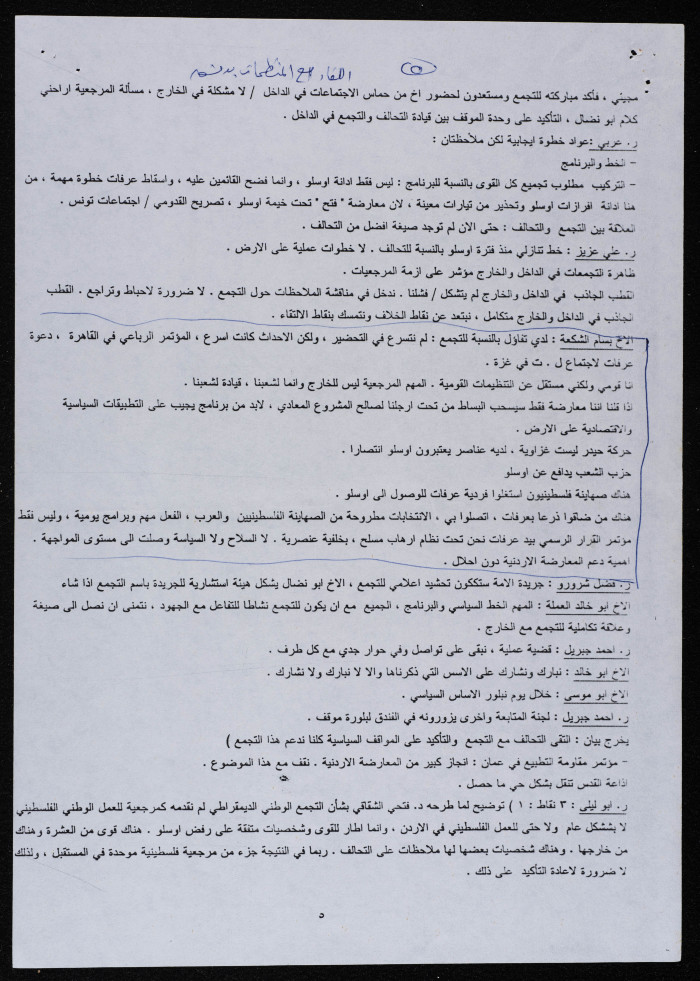 ٥
اللقاء مع المنظمات بدمشق
مجيئي ، فأكد مباركته للتجمع ومستعدون لحضور اخ من حماس الاجتماعات في الداخل / لا مشكلة في الخارج ، مسألة المرجعية اراحني
كلام ابو نضال ، التأكيد على وحدة الموقف بين قيادة التحالف والتجمع في الداخل .
ر. عربي :عواد خطوة ايجابية لكن ملاحظتان :
– الخط والبرنامج
– التركيب مطلوب تجميع كل القوى بالنسبة للبرنامج : ليس فقط ادانة اوسلو ، وانما فضح القائمين عليه ، واسقاط عرفات خطوة مهمة ، من
هنا ادانة افرازات اوسلو وتحذير من تيارات معينة ، لان معارضة " فتح " تحت خيمة اوسلو ، تصريح القدومي / اجتماعات تونس .
العلاقة بين التجمع والتحالف : حتى الان لم توجد صيغة افضل من التحالف .
ر. علي عزيز : خط تنازلي منذ فترة اوسلو بالنسبة للتحالف . لا خطوات عملية على الارض .
ظاهرة التجمعات في الداخل والخارج مؤشر على ازمة المرجعيات .
القطب الجاذب في الداخل والخارج لم يتشكل / فشلنا . ندخل في مناقشة الملاحظات حول التجمع . لا ضرورة لاحباط وتراجع . القطب
الجاذب في الداخل والخارج متكامل ، نبتعد عن نقاط الخلاف ونتمسك بنقاط الالتقاء .
الاخ بسام الشكعة : لدي تفاؤل بالنسبة للتجمع : لم نتسرع في التحضير ، ولكن الاحداث كانت اسرع ، المؤتمر الرباعي في القاهرة ، دعوة
عرفات لاجتماع ل . ت في غزة .
انا قومي ولكني مستقل عن التنظيمات القومية . المهم المرجعية ليس للخارج وانما لشعبنا ، قيادة لشعبنا .
اذا قلنا اننا معارضة فقط سيسحب البساط من تحت ارجلنا لصالح المشروع المعادي ، لابد من برنامج يجيب على التطبيقات السياسية
والاقتصادية على الارض .
حركة حيدر ليست غزاوية ، لديه عناصر يعتبرون اوسلو انتصارا .
حزب الشعب يدافع عن اوسلو
هناك صهاينة فلسطينيون استغلوا فردية عرفات للوصول الى اوسلو .
هناك من ضاقوا ذرعا بعرفات ، اتصلوا بي ، الانتخابات مطروحة من الصهاينة الفلسطينيين والعرب ، الفعل مهم وبرامج يومية ، وليس فقط
مؤتمر القرار الرسمي بيد عرفات نحن تحت نظام ارهاب مسلح ، بخلفية عنصرية . لا السلاح ولا السياسة وصلت الى مستوى المواجهة .
اهمية دعم المعارضة الاردنية دون احلال .
ر. فضل شرورو : جريدة الامة ستككون تحشيد اعلامي للتجمع ، الاخ ابو نضال يشكل هيئة استشارية للجريدة باسم التجمع اذا شاء
الاخ ابو خالد العملة : المهم الخط السياسي والبرنامج ، الجميع مع ان يكون للتجمع نشاطا للتفاعل مع الجهود . نتمنى ان نصل الى صيغة
وعلاقة تكاملية للتجمع مع الخارج .
ر. احمد جبريل : قضية عملية ، نبقى على تواصل وفي حوار جدي مع كل طرف .
الاخ ابو خالد : نبارك ونشارك على الاسس التي ذكرناها والا لا نبارك ولا نشارك .
الاخ ابو موسى : خلال يوم نبلور الاساس السياسي .
ر. احمد جبريل : لجنة المتابعة واخرى يزورونه في الفندق لبلورة موقف .
يخرج بيان : التقى التحالف مع التجمع والتأكيد على المواقف السياسية كلنا ندعم هذا التجمع )
– مؤتمر مقاومة التطبيع في عمان : انجاز كبير من المعارضة الاردنية . نقف مع هذا الموضوع .
اذاعة القدس تنقل بشكل حي ما حصل .
ر. ابو ليلى : ٣ نقاط : ١ ) توضيح لما طرحه د. فتحي الشقاقي بشأن التجمع الوطني الديمقراطي لم نقدمه كمرجعية للعمل الوطني الفلسطيني
لا بششكل عام ولا حتى للعمل الفلسطيني في الاردن ، وانما اطار للقوى وشخصيات متفقة على رفض اوسلو . هناك قوى من العشرة وهناك
من خارجها . وهناك شخصيات بعضها لها ملاحظات على التحالف . ربما في النتيجة جزء من مرجعية فلسطينية موحدة في المستقبل ، ولذلك
لا ضرورة لاعادة التأكيد على ذلك .
٥